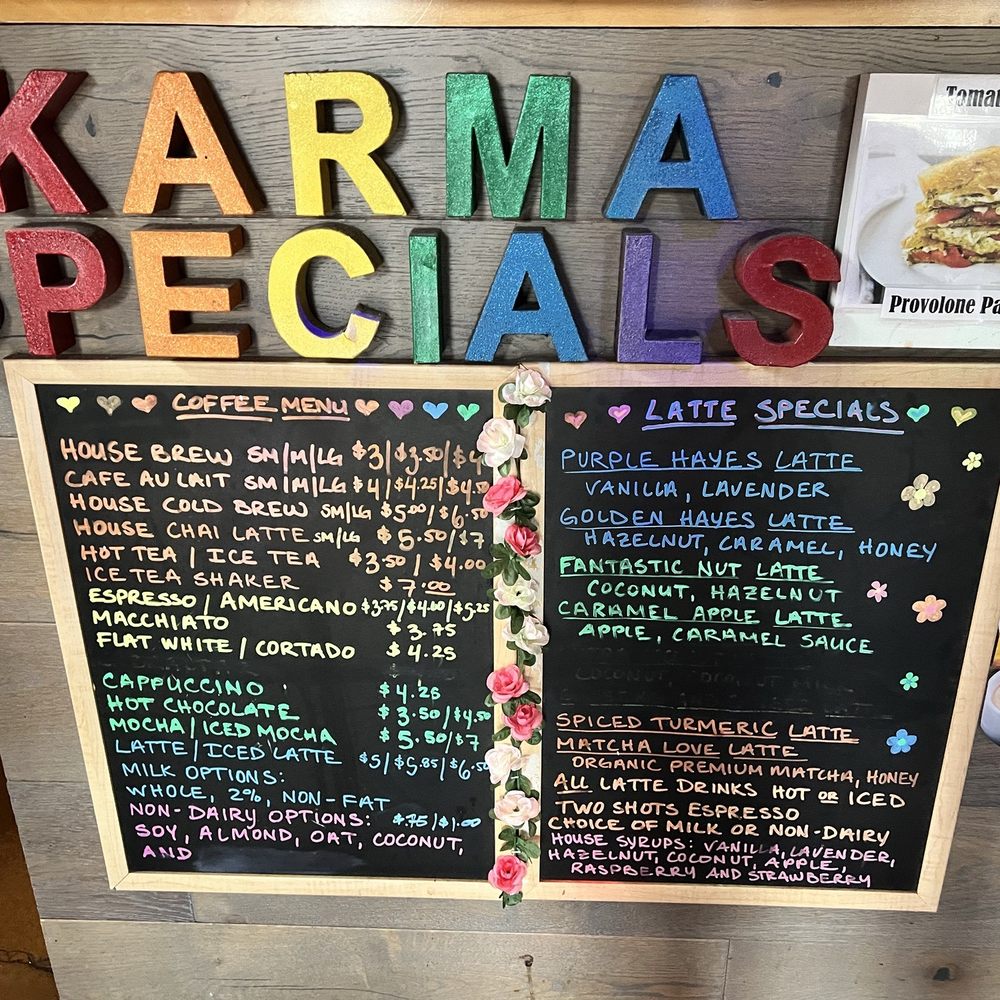 KARMA
SPECIALS
Tomat
Provolone Pa
COFFEE MENU
HOUSE BREW SM/M/LG $3/$3.50/$4
CAFE AU LAIT SM/M/LG $4/$4.25/$4.50
HOUSE COLD BREW SM/LG $5.00/$6.50
HOUSE CHAI LATTE SM/LG $5.50/$7
HOT TEA / ICE TEA $3.50/$4.00
ICE TEA SHAKER $7.00
ESPRESSO / AMERICANO $3.75/$4.00/$5.25
MACCHIATO $3.75
FLAT WHITE / CORTADO $4.25
CAPPUCCINO $4.25
HOT CHOCOLATE $3.50/$4.50
MOCHA / ICED MOCHA $5.50/$7
LATTE / ICED LATTE $5/$5.85/$6.50
MILK OPTIONS:
WHOLE, 2%, NON-FAT
NON-DAIRY OPTIONS: $.75/$1.00
SOY, ALMOND, OAT, COCONUT,
AND
LATTE SPECIALS
PURPLE HAYES LATTE
VANILLA, LAVENDER
GOLDEN HAYES LATTE
HAZELNUT, CARAMEL, HONEY
FANTASTIC NUT LATTE
COCONUT, HAZELNUT
CARAMEL APPLE LATTE
APPLE, CARAMEL SAUCE
SPICED TURMERIC LATTE
MATCHA LOVE LATTE
ORGANIC PREMIUM MATCHA, HONEY
ALL LATTE DRINKS HOT OR ICED
TWO SHOTS ESPRESSO
CHOICE OF MILK OR NON-DAIRY
HOUSE SYRUPS: VANILLA, LAVENDER,
HAZELNUT, COCONUT, APPLE,
RASPBERRY AND STRAWBERRY